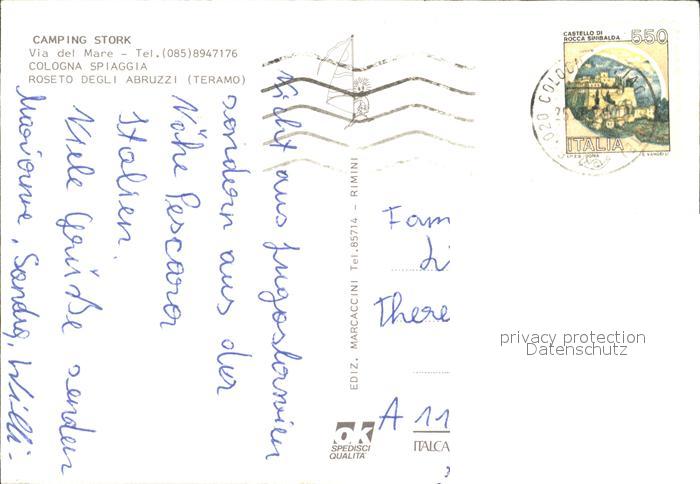 CAMPING STORK
Via del Mare - Tel.(085)8947176
COLOGNA SPIAGGIA
ROSETO DEGLI ABRUZZI (TERAMO)
Nicht aus Jugoslawien
sondern aus der
Nähe Pescara
Italien.
Viele Grüße senden
Marianne, Sandra, Willi.
EDIZ. MARCACCINI Tel.85714 - RIMINI
CASTELLO DI
ROCCA SINIBALDA
550
ITALIA
Fam
Li
There
A 11
ok
SPEDISCI
QUALITÀ
ITALCA
privacy protection
Datenschutz